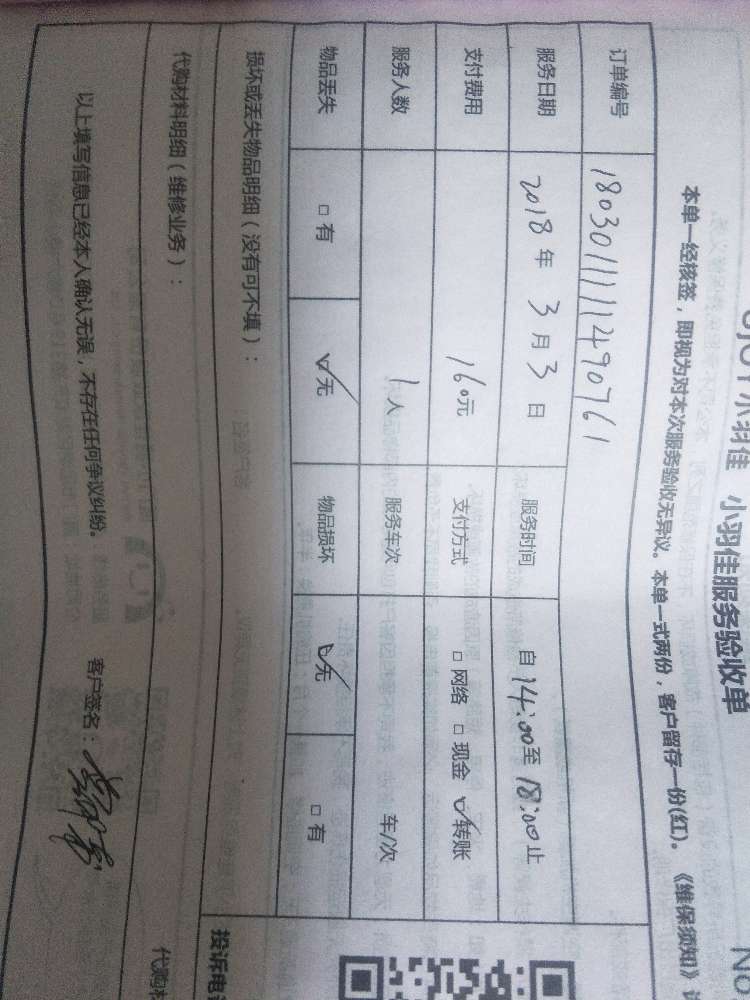 小羽佳 小羽佳服务验收单
本单一经核签，即视为对本次服务验收无异议。本单一式两份，客户留存一份(红)。《维保须知》
订单编号 180301111490761
服务日期 2018年3月3日 服务时间 自14:00至18:00止
支付费用 160元 支付方式 □网络 □现金 ☑转账
服务人数 1人 服务车次 车/次
物品丢失 □有 ☑无 物品损坏 ☑无 □有
损坏或丢失物品明细（没有可不填）：
代购材料明细（维修业务）：
以上填写信息已经本人确认无误，不存在任何争议纠纷。 客户签名：
投诉电
代购